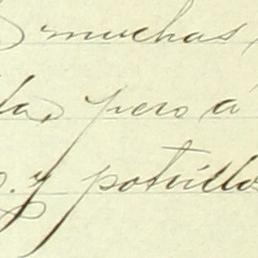 muchas
pero á
y potrillos